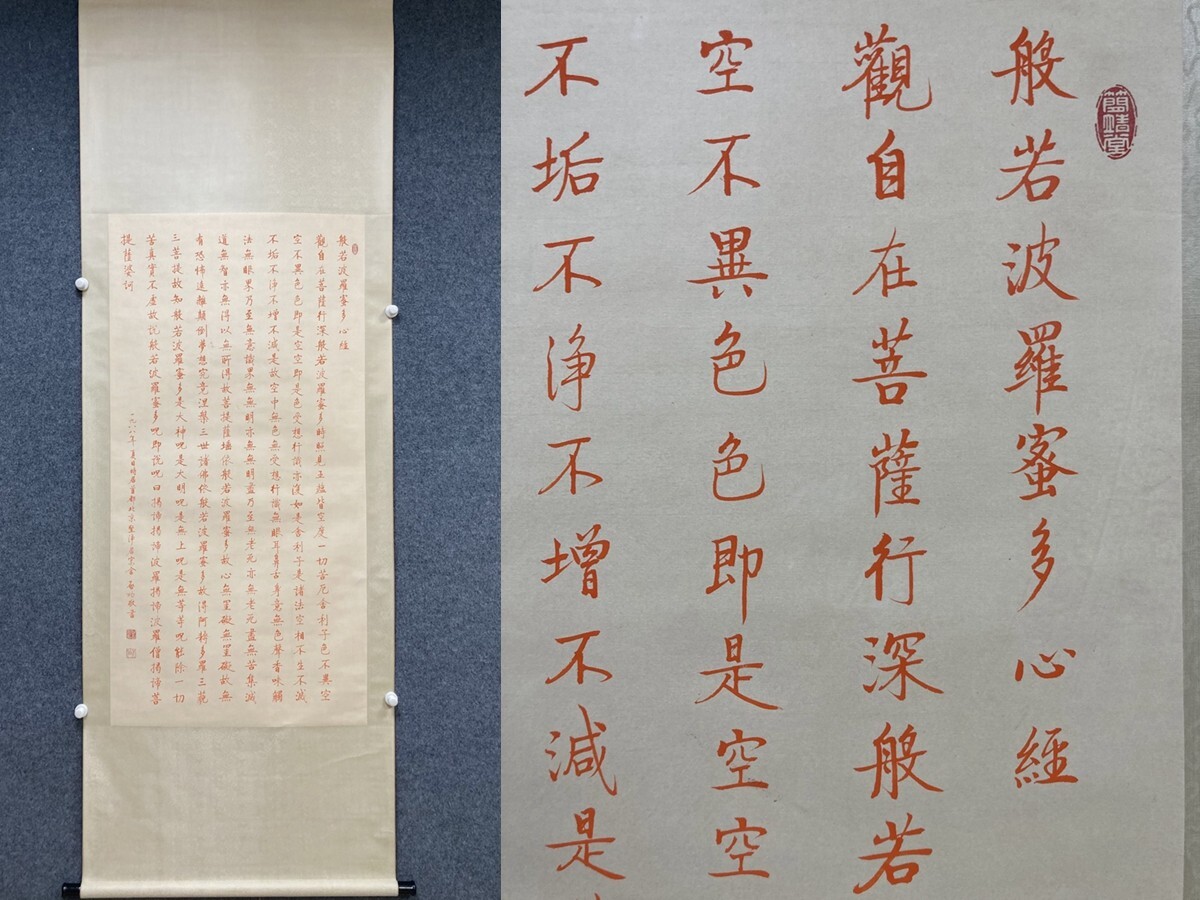 般若波羅蜜多心經
觀自在菩薩行深般若波羅蜜多時照見五蘊皆空度一切苦厄舍利子色不異空
空不異色色即是空空即是色受想行識亦復如是舍利子是諸法空相不生不滅
不垢不淨不增不減是故空中無色無受想行識無眼耳鼻舌身意無色聲香味觸
法無眼界乃至無意識界無無明亦無無明盡乃至無老死亦無老死盡無苦集滅
道無智亦無得以無所得故菩提薩埵依般若波羅蜜多故心無罣礙無罣礙故無
有恐怖遠離顛倒夢想究竟涅槃三世諸佛依般若波羅蜜多故得阿耨多羅三藐
三菩提故知般若波羅蜜多是大神呪是大明呪是無上呪是無等等呪能除一切
苦真實不虛故說般若波羅蜜多呪即說呪曰揭諦揭諦波羅揭諦波羅僧揭諦菩
提薩婆訶
一九八八年夏日時居首都北京堅淨居 启功敬書
簡靖堂
般若波羅蜜多心經
觀自在菩薩行深般若
空不異色色即是空空
不垢不淨不增不減是